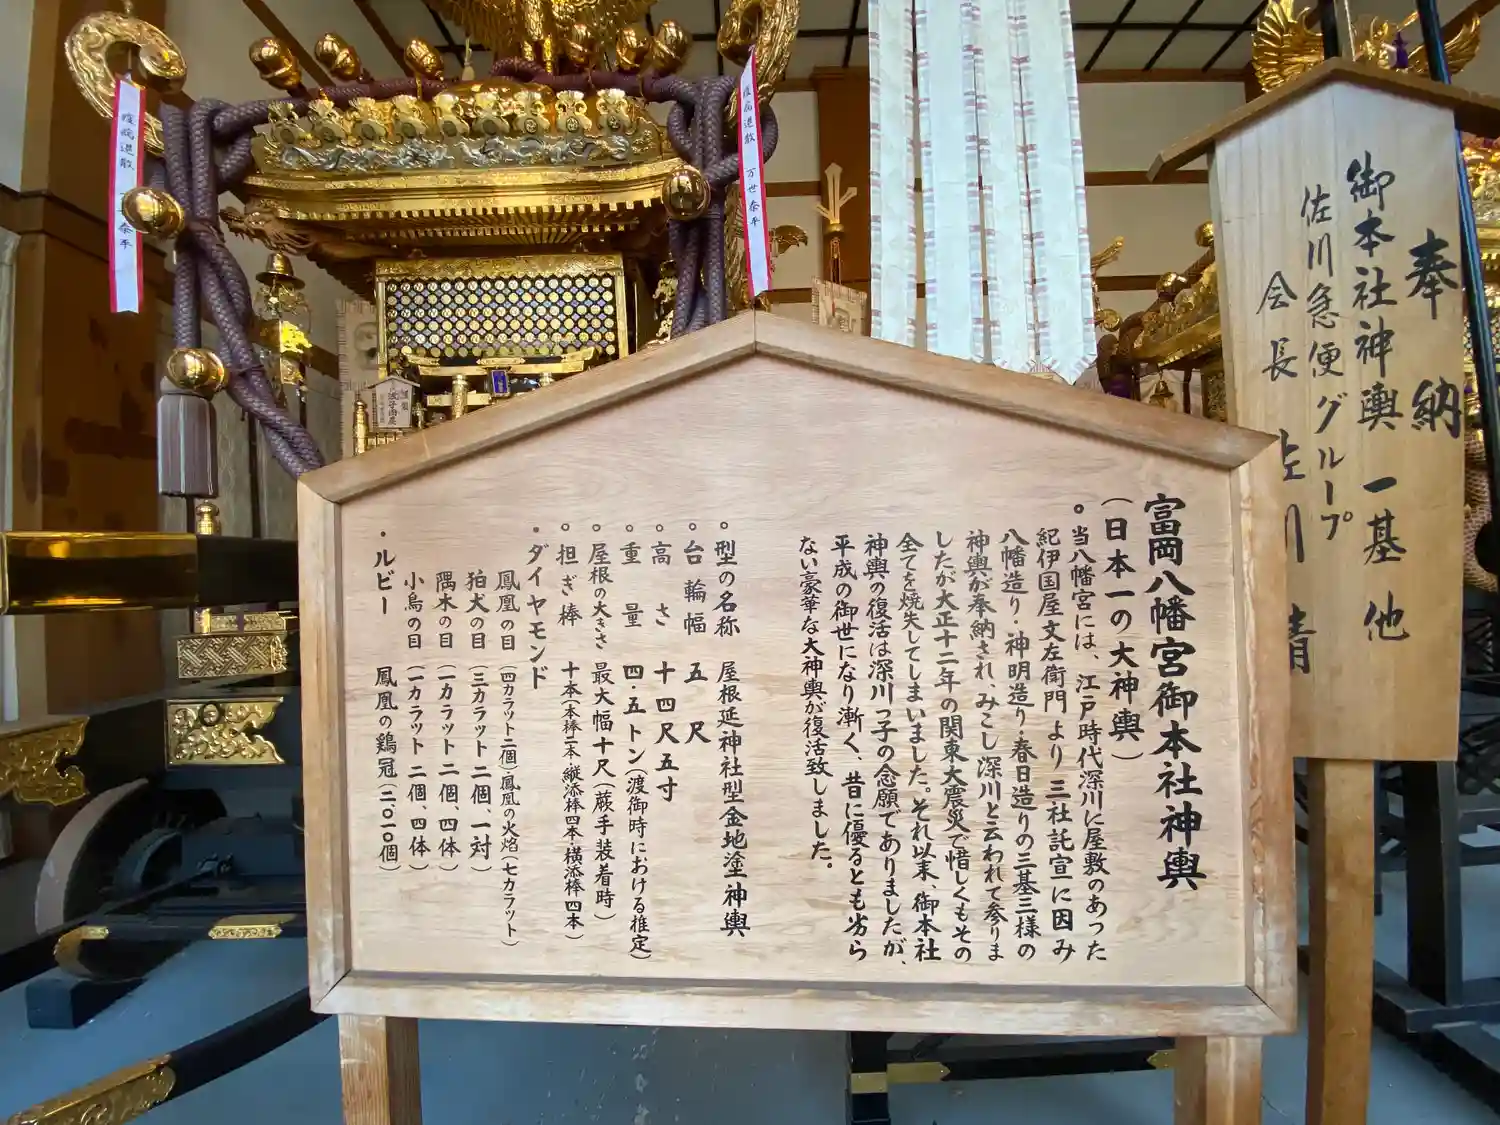 富岡八幡宮御本社神輿
(日本一の大神輿)
。当八幡宮には、江戸時代深川に屋敷のあった
紀伊国屋文左衛門より三社託宣に因み
八幡造り・神明造り・春日造りの三基三様の
神輿が奉納され、みこし深川と云われて参りま
したが大正十二年の関東大震災で惜しくもその
全てを焼失してしまいました。それ以来、御本社
神輿の復活は深川っ子の念願でありましたが、
平成の御世になり漸く、昔に優るとも劣ら
ない豪華な大神輿が復活致しました。
。型の名称 屋根延神社型金地塗神輿
。台輪幅 五尺
。高さ 十四尺五寸
。重量 四・五トン(渡御時における推定)
。屋根の大きさ 最大幅十尺(蕨手装着時)
。担ぎ棒 十本(本棒二本・縦添棒四本・横添棒四本)
・ダイヤモンド
鳳凰の目 (四カラット二個)・鳳凰の火焔(七カラット)
狛犬の目 (三カラット二個一対)
隅木の目 (一カラット二個、四体)
小鳥の目 (一カラット二個、四体)
・ルビー 鳳凰の鶏冠(二、〇一〇個)
奉納
御本社神輿 一基 他
佐川急便グループ
会長 佐川 清
疫病退散 万世泰平
疫病退散 万世泰平